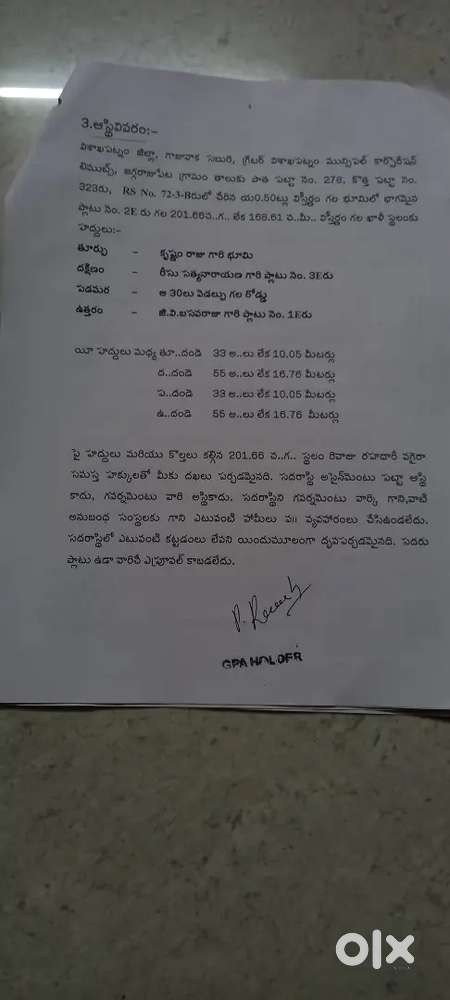 3.ఆస్థివివరం:-
విశాఖపట్నం జిల్లా, గాజువాక సబురి, గ్రేటర్ విశాఖపట్నం మున్సిపల్ కార్పొరేషన్
లిమిట్స్, జగ్గరాజుపేట గ్రామం తాలుకు పాత పట్టా నెం. 278, కొత్త పట్టా నెం.
323రు, RS No. 72-3-Bరులో చేరిన య0.50ట్లు విస్తీర్ణం గల భూమిలో భాగమైన
ప్లాటు నెం. 2E రు గల 201.66చ..గ.. లేక 168.61 చ..మీ.. విస్తీర్ణం గల ఖాళీ స్థలంకు
హద్దులు:-
తూర్పు - కృష్ణం రాజు గారి భూమి
దక్షిణం - రీసు సత్యనారాయణ గారి ప్లాటు నెం. 3Eరు
పడమర - అ 30లు వెడల్పు గల రోడ్డు
ఉత్తరం - జి.వి.బసవరాజు గారి ప్లాటు నెం. 1Eరు
యీ హద్దులు మధ్య తూ..దండి 33 అ..లు లేక 10.05 మీటర్లు
ద..దండి 55 అ..లు లేక 16.76 మీటర్లు
ప..దండి 33 అ..లు లేక 10.05 మీటర్లు
ఉ..దండి 55 అ..లు లేక 16.76 మీటర్లు
పై హద్దులు మరియు కొల్తలు కల్గిన 201.66 చ..గ.. స్థలం రివాజు రహదారీ వగైరా
సమస్త హక్కులతో మీకు దఖలు పర్చడమైనది. సదరాస్థి అసైన్‌మెంటు పట్టా ఆస్థి
కాదు, గవర్నమెంటు వారి అస్థికాదు. సదరాస్థిని గవర్నమెంటు వార్కి గాని,వాటి
అనుబంధ సంస్థలకు గాని ఎటువంటి హామీలు వ॥ వ్యవహారంలు చేసిఉండలేదు.
సదరాస్థిలో ఎటువంటి కట్టడంలు లేవని యిందుమూలంగా దృవపర్చడమైనది. సదరు
ప్లాటు ఉడా వారిచే ఎప్రూవల్ కాబడలేదు.
GPA HOLDER
olx